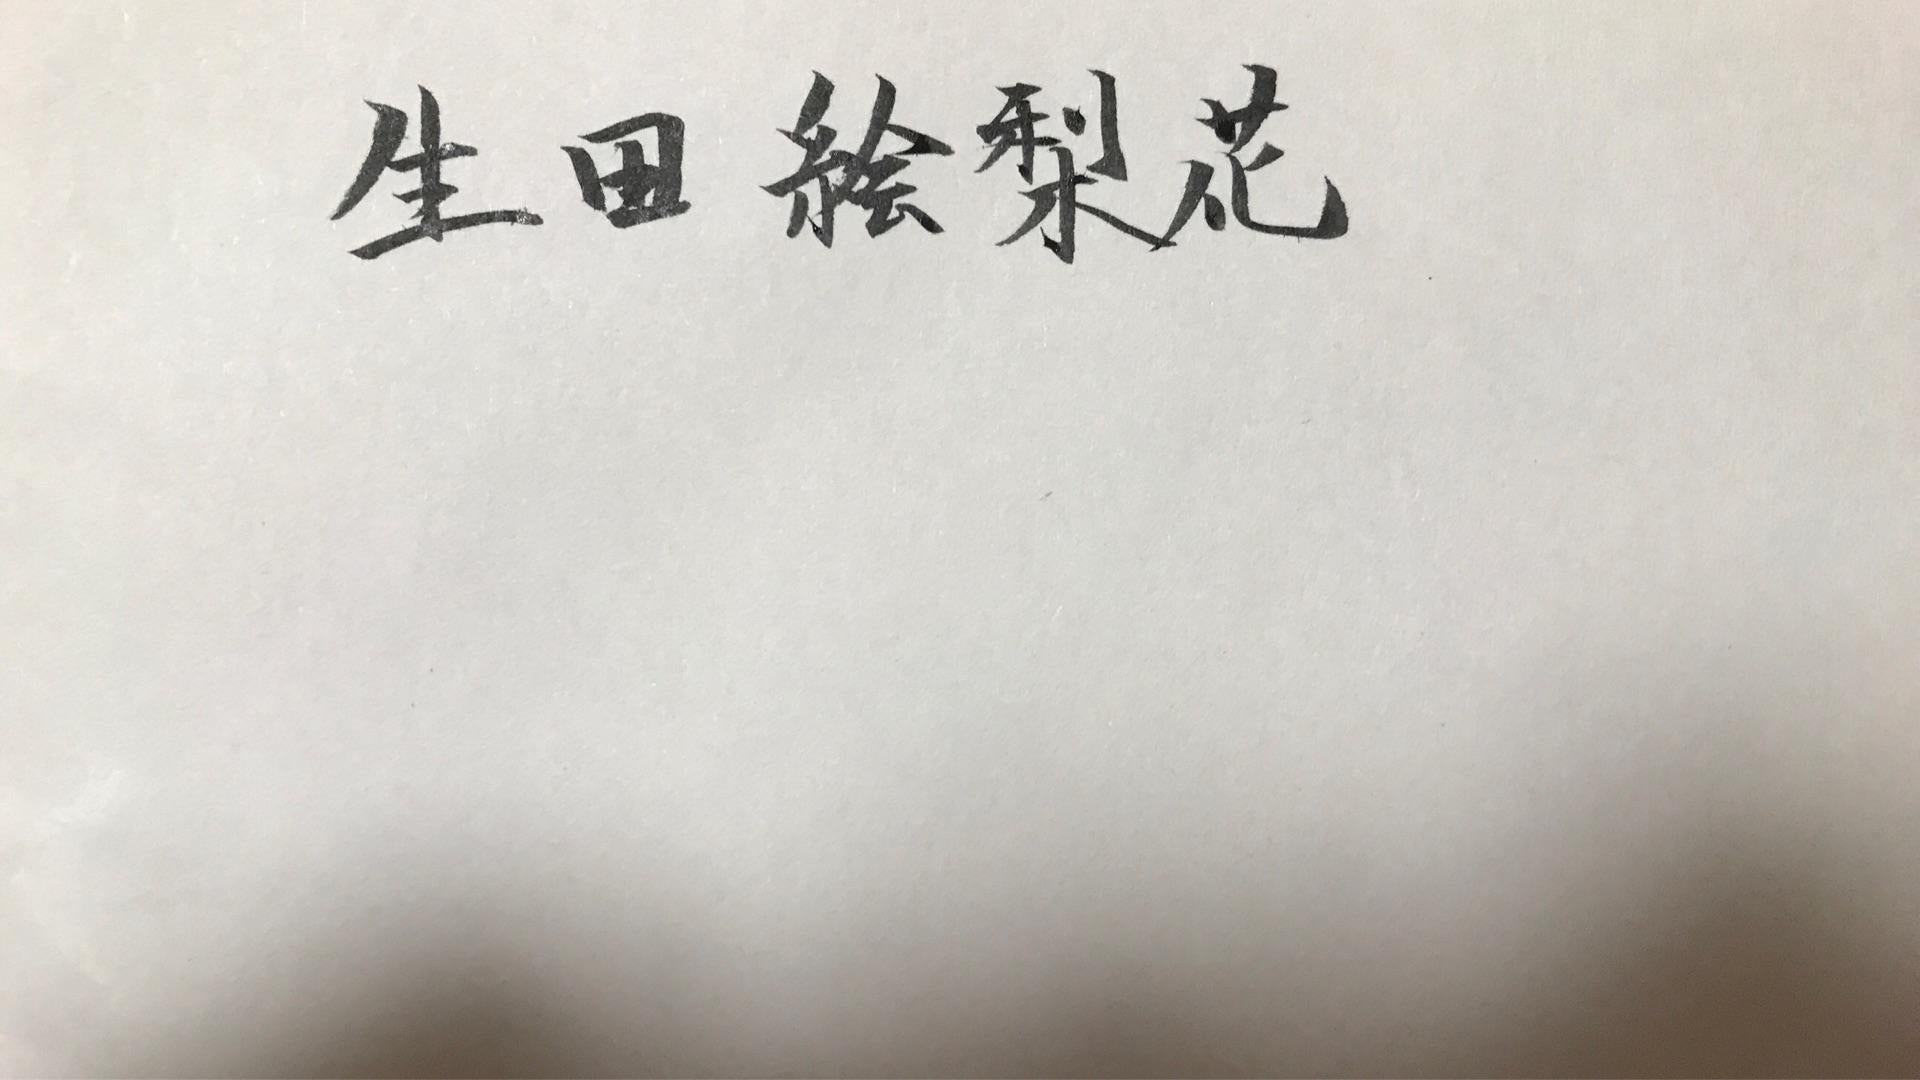 生田絵梨花